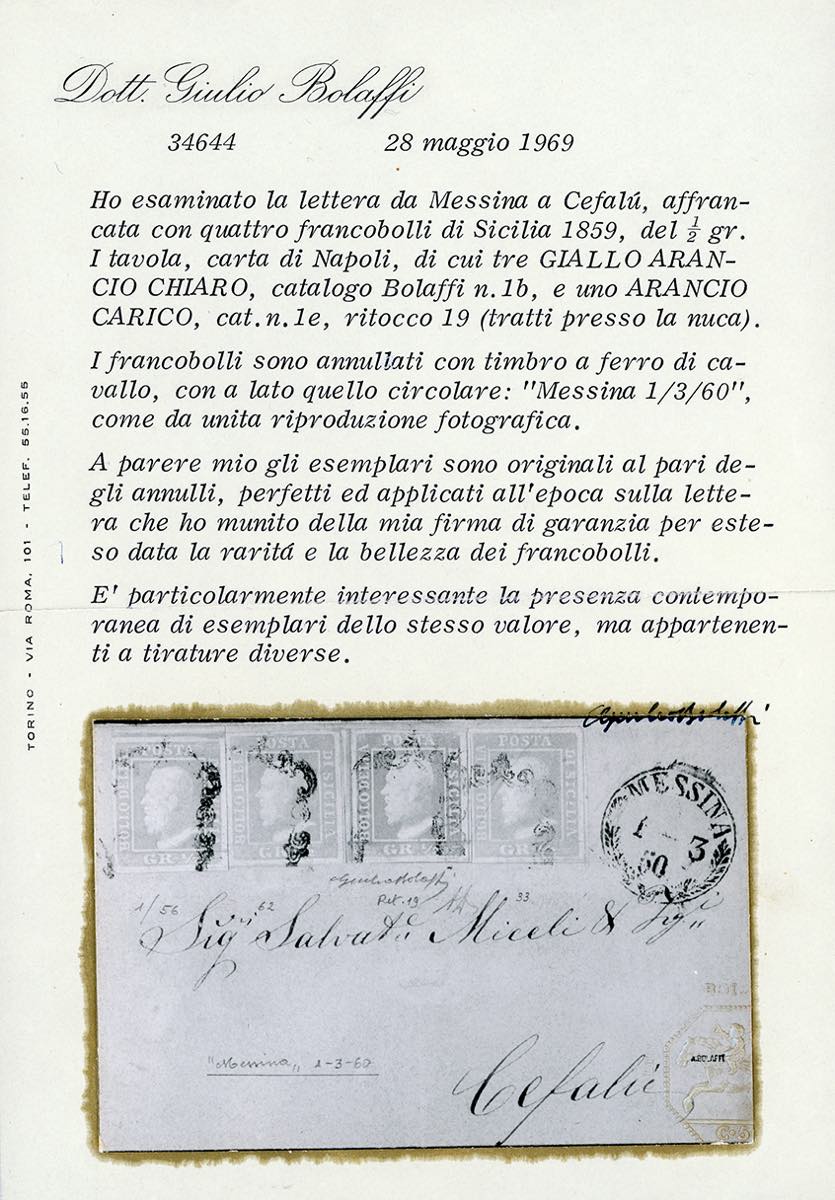 Dott. Giulio Bolaffi
34644 28 maggio 1969
Ho esaminato la lettera da Messina a Cefalú, affran-
cata con quattro francobolli di Sicilia 1859, del ½ gr.
I tavola, carta di Napoli, di cui tre GIALLO ARAN-
CIO CHIARO, catalogo Bolaffi n. 1b, e uno ARANCIO
CARICO, cat. n. 1e, ritocco 19 (tratti presso la nuca).
I francobolli sono annullati con timbro a ferro di ca-
vallo, con a lato quello circolare: "Messina 1/3/60",
come da unita riproduzione fotografica.
A parere mio gli esemplari sono originali al pari de-
gli annulli, perfetti ed applicati all'epoca sulla lette-
ra che ho munito della mia firma di garanzia per este-
so data la raritá e la bellezza dei francobolli.
E' particolarmente interessante la presenza contempo-
ranea di esemplari dello stesso valore, ma appartenen-
ti a tirature diverse.
TORINO - VIA ROMA, 101 - TELEF. 55.16.55
Giulio Bolaffi
POSTA POSTA POSTA POSTA
BOLLO DELLA DI SICILIA
GR. ½
MESSINA
1 - 3
60
Giulio Bolaffi
Rit. 19
1/56 62 33
Sigri Salvatu Miceli &
"Messina" 1-3-60
Cefalù
A. BOLAFFI